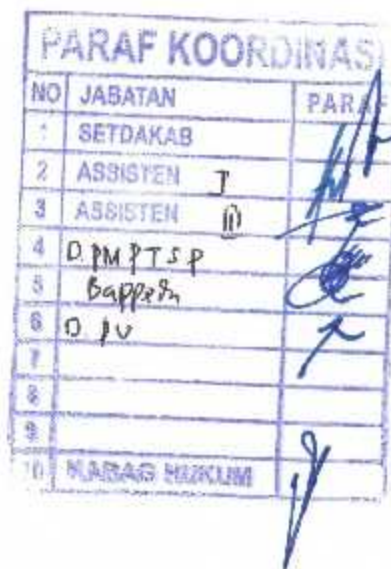 PARAF KOORDINASI
NO JABATAN PARAF
1 SETDAKAB
2 ASSISTEN I
3 ASSISTEN III
4 D. PMPTSP
5 Bappeda
6 D. PU
7
8
9
10 KABAG HUKUM